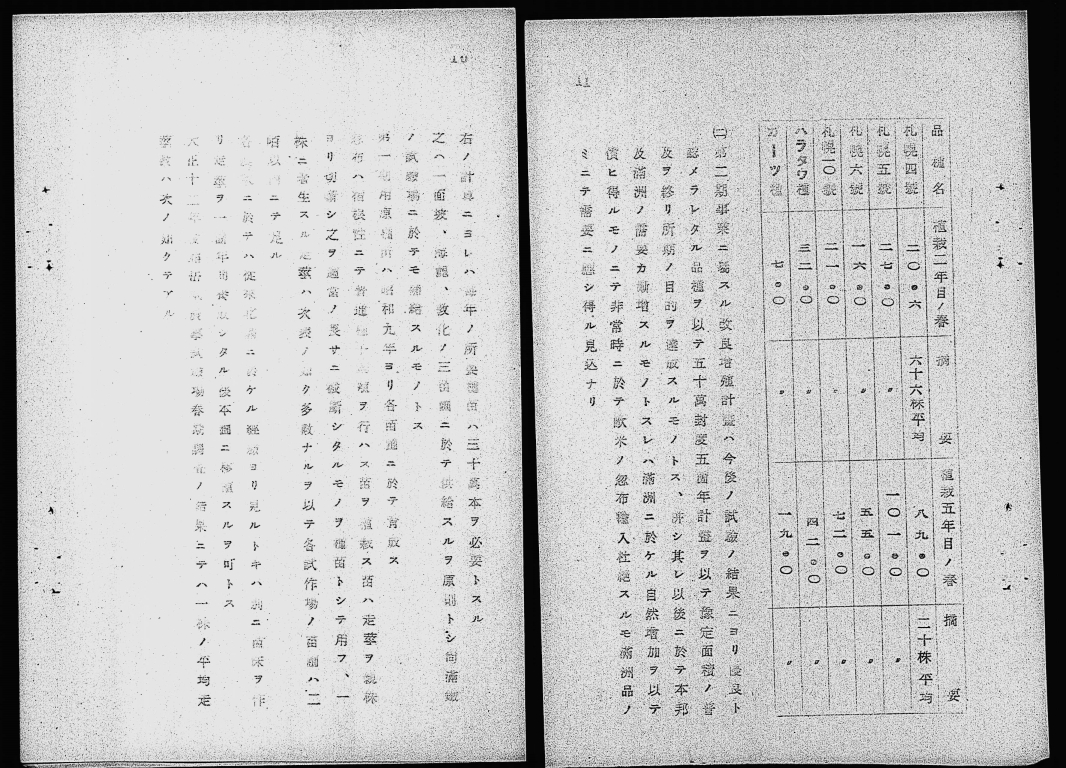 10
右ノ計算ニヨレハ毎年ノ所要種苗ハ三十萬本ヲ必要トスル
之ハ一面坡、海龍、敦化ノ三苗圃ニ於テ供給スルヲ原則トシ尚滿鐵
ノ試驗場ニ於テモ補給スルモノトス
第一期用原種苗ハ昭和九年ヨリ各苗圃ニ於テ育成ス
忽布ハ宿根性ニテ普通種子 ヲ行ハス苗ヲ植栽ス苗ハ走蔓ヲ親株
ヨリ切離シ之ヲ適當ノ長サニ截斷シタルモノヲ種苗トシテ用フ、一
株ニ着生スル走蔓ハ次表ノ如ク多數ナルヲ以テ各試作場ノ苗圃ハ二
晌以内ニテ足ル
ニ於テハ從來北海道ニ於ケル經驗ヨリ見ルトキハ別ニ苗床ヲ作
リ走蔓ヲ一 年間養成シタル後本圃ニ移植スルヲ可トス
大正十二年 農事試驗場春期調査ノ結果ニテハ一株ノ平均走
蔓數ハ次ノ如クデアル
11
品種名 植栽二年目ノ春 摘要 植栽五年目ノ春 摘要
札幌四號 二〇。六 六十六株平均 八九。〇 二十株平均
札幌五號 二七。〇 〃 一〇一。〇 〃
札幌六號 一六。〇 〃 五五。〇 〃
札幌一〇號 二一。〇 〃 七二。〇 〃
ハラタウ種 三二。〇 〃 四二。〇 〃
ガーツ種 七。〇 〃 一九。〇 〃
(二)第二期事業ニ屬スル改良增殖計畫ハ今後ノ試驗ノ結果ニヨリ優良ト
認メラレタル品種ヲ以テ五十萬封度五箇年計畫ヲ以テ豫定面積ノ普
及ヲ終リ所期ノ目的ヲ達成スルモノトス、并シ其レ以後ニ於テ本邦
及滿洲ノ需要力漸增スルモノトスレハ滿洲ニ於ケル自然增加ヲ以テ
償ヒ得ルモノニテ非常時ニ於テ歐米ノ忽布輸入杜絶スルモ滿洲品ノ
ミニテ需要ニ應シ得ル見込ナリ